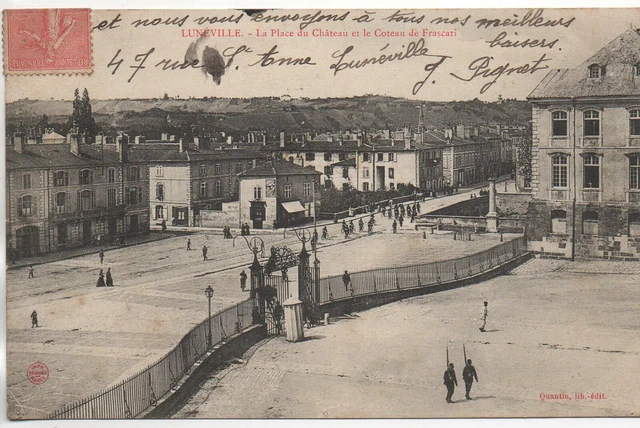 et nous vous envoyons à tous nos meilleurs
baisers.
LUNÉVILLE. - La Place du Château et le Coteau de Frascati
47 rue Ste Anne Lunéville J. Pignet
Quantin, lib.-édit.